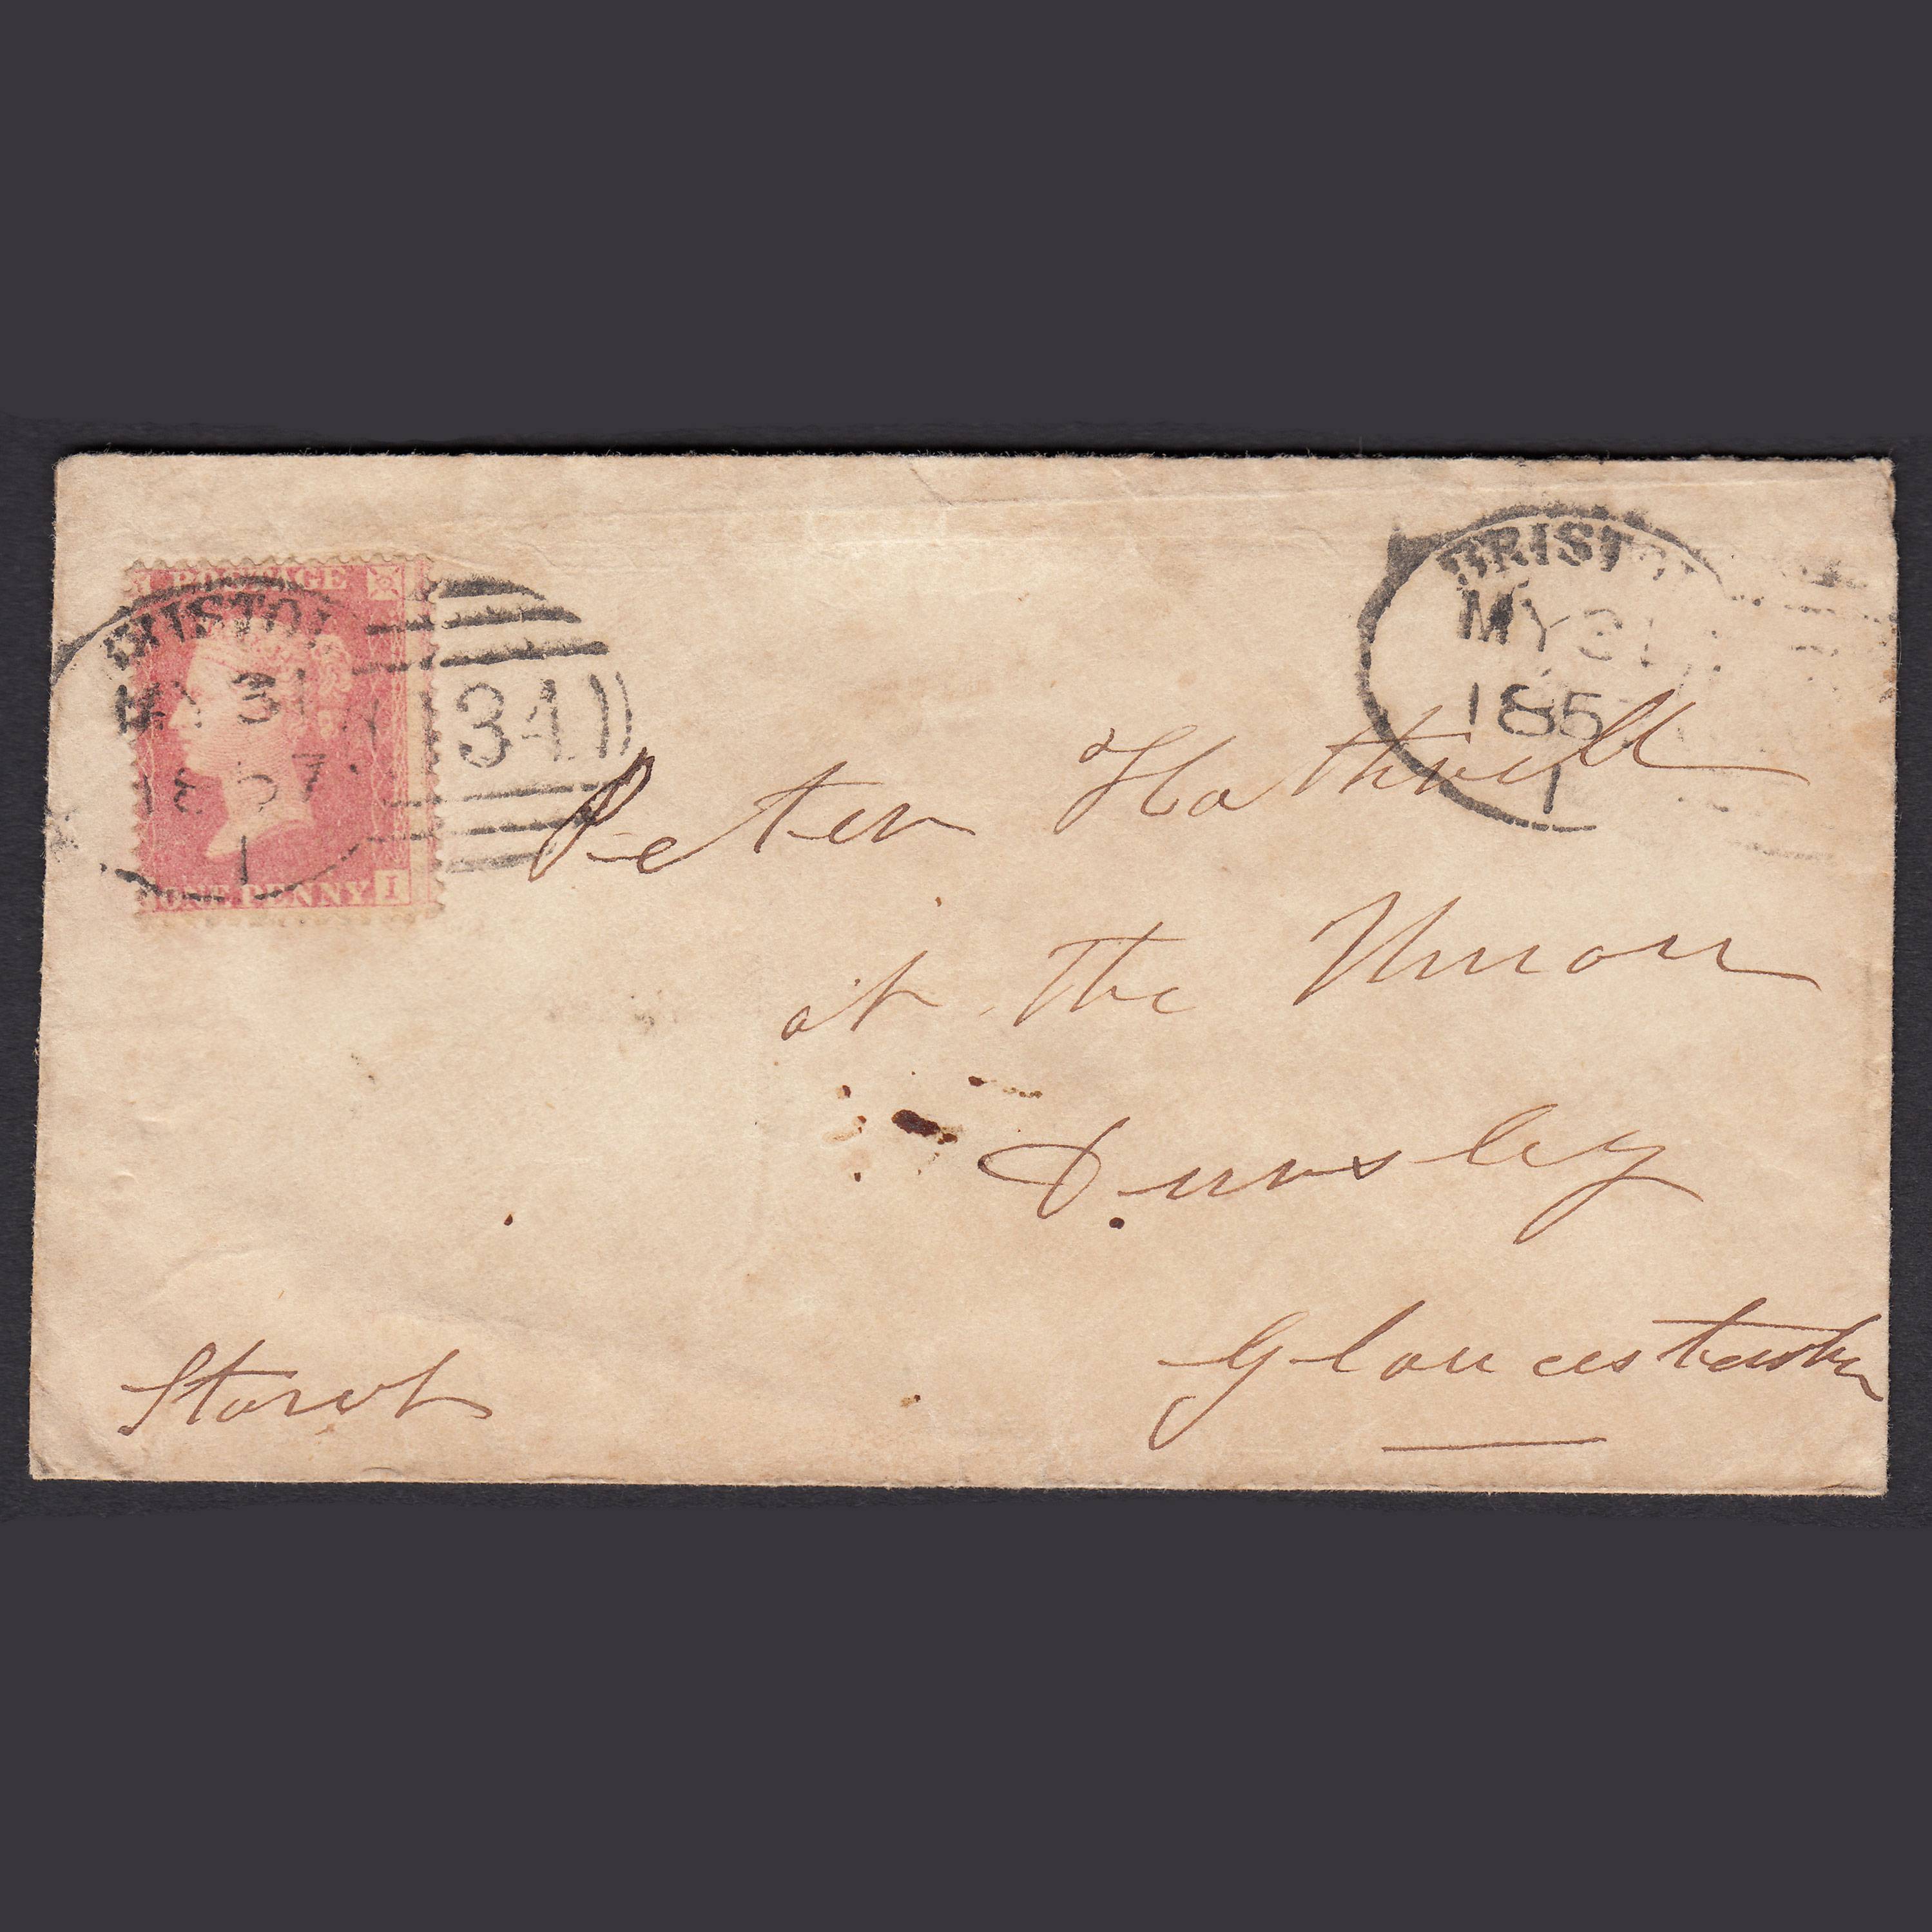 POSTAGE
BRISTOL
MY 31
1857
1
341
ONE PENNY I
BRISTOL
MY 31
1857
1
Peter Hathwell
at the Union
Dursley
Gloucestershr